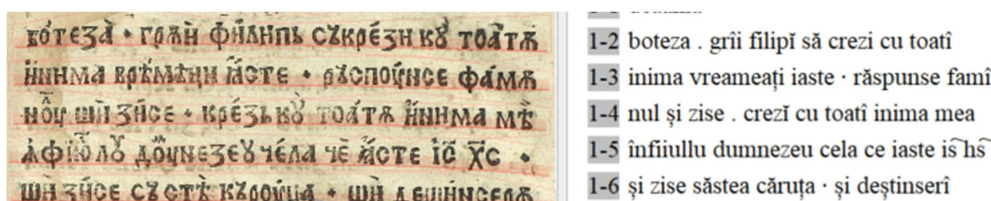 ботеза̀ · грѫи́ фи́липь съкре́зи кꙋ̀ тоа́тѫ
и́нима врѣ́мѣци ꙗ́сте ·ръспоу́нсе фа́мѫ
ноу̑ ши́ зи́се · кре́зь кꙋ̀ тоа́тѫ и́нима мѣ̀
ꙟфїю́лꙋ доу́мнезеꙋ че́ла чѐ ꙗ́сте і҃с х҃с ·
ши́ зи́се състѣ̀ къроу́ца · ши́ дещи́нсерѫ
1-2 boteza . grîi filipĭ să crezi cu toatî
1-3 inima vreameați iaste · răspunse famî
1-4 nul și zise . crezĭ cu toatî inima mea
1-5 înfiiullu dumnezeu cela ce iaste is͡ hs͡
1-6 și zise săstea căruța · și deștinserî